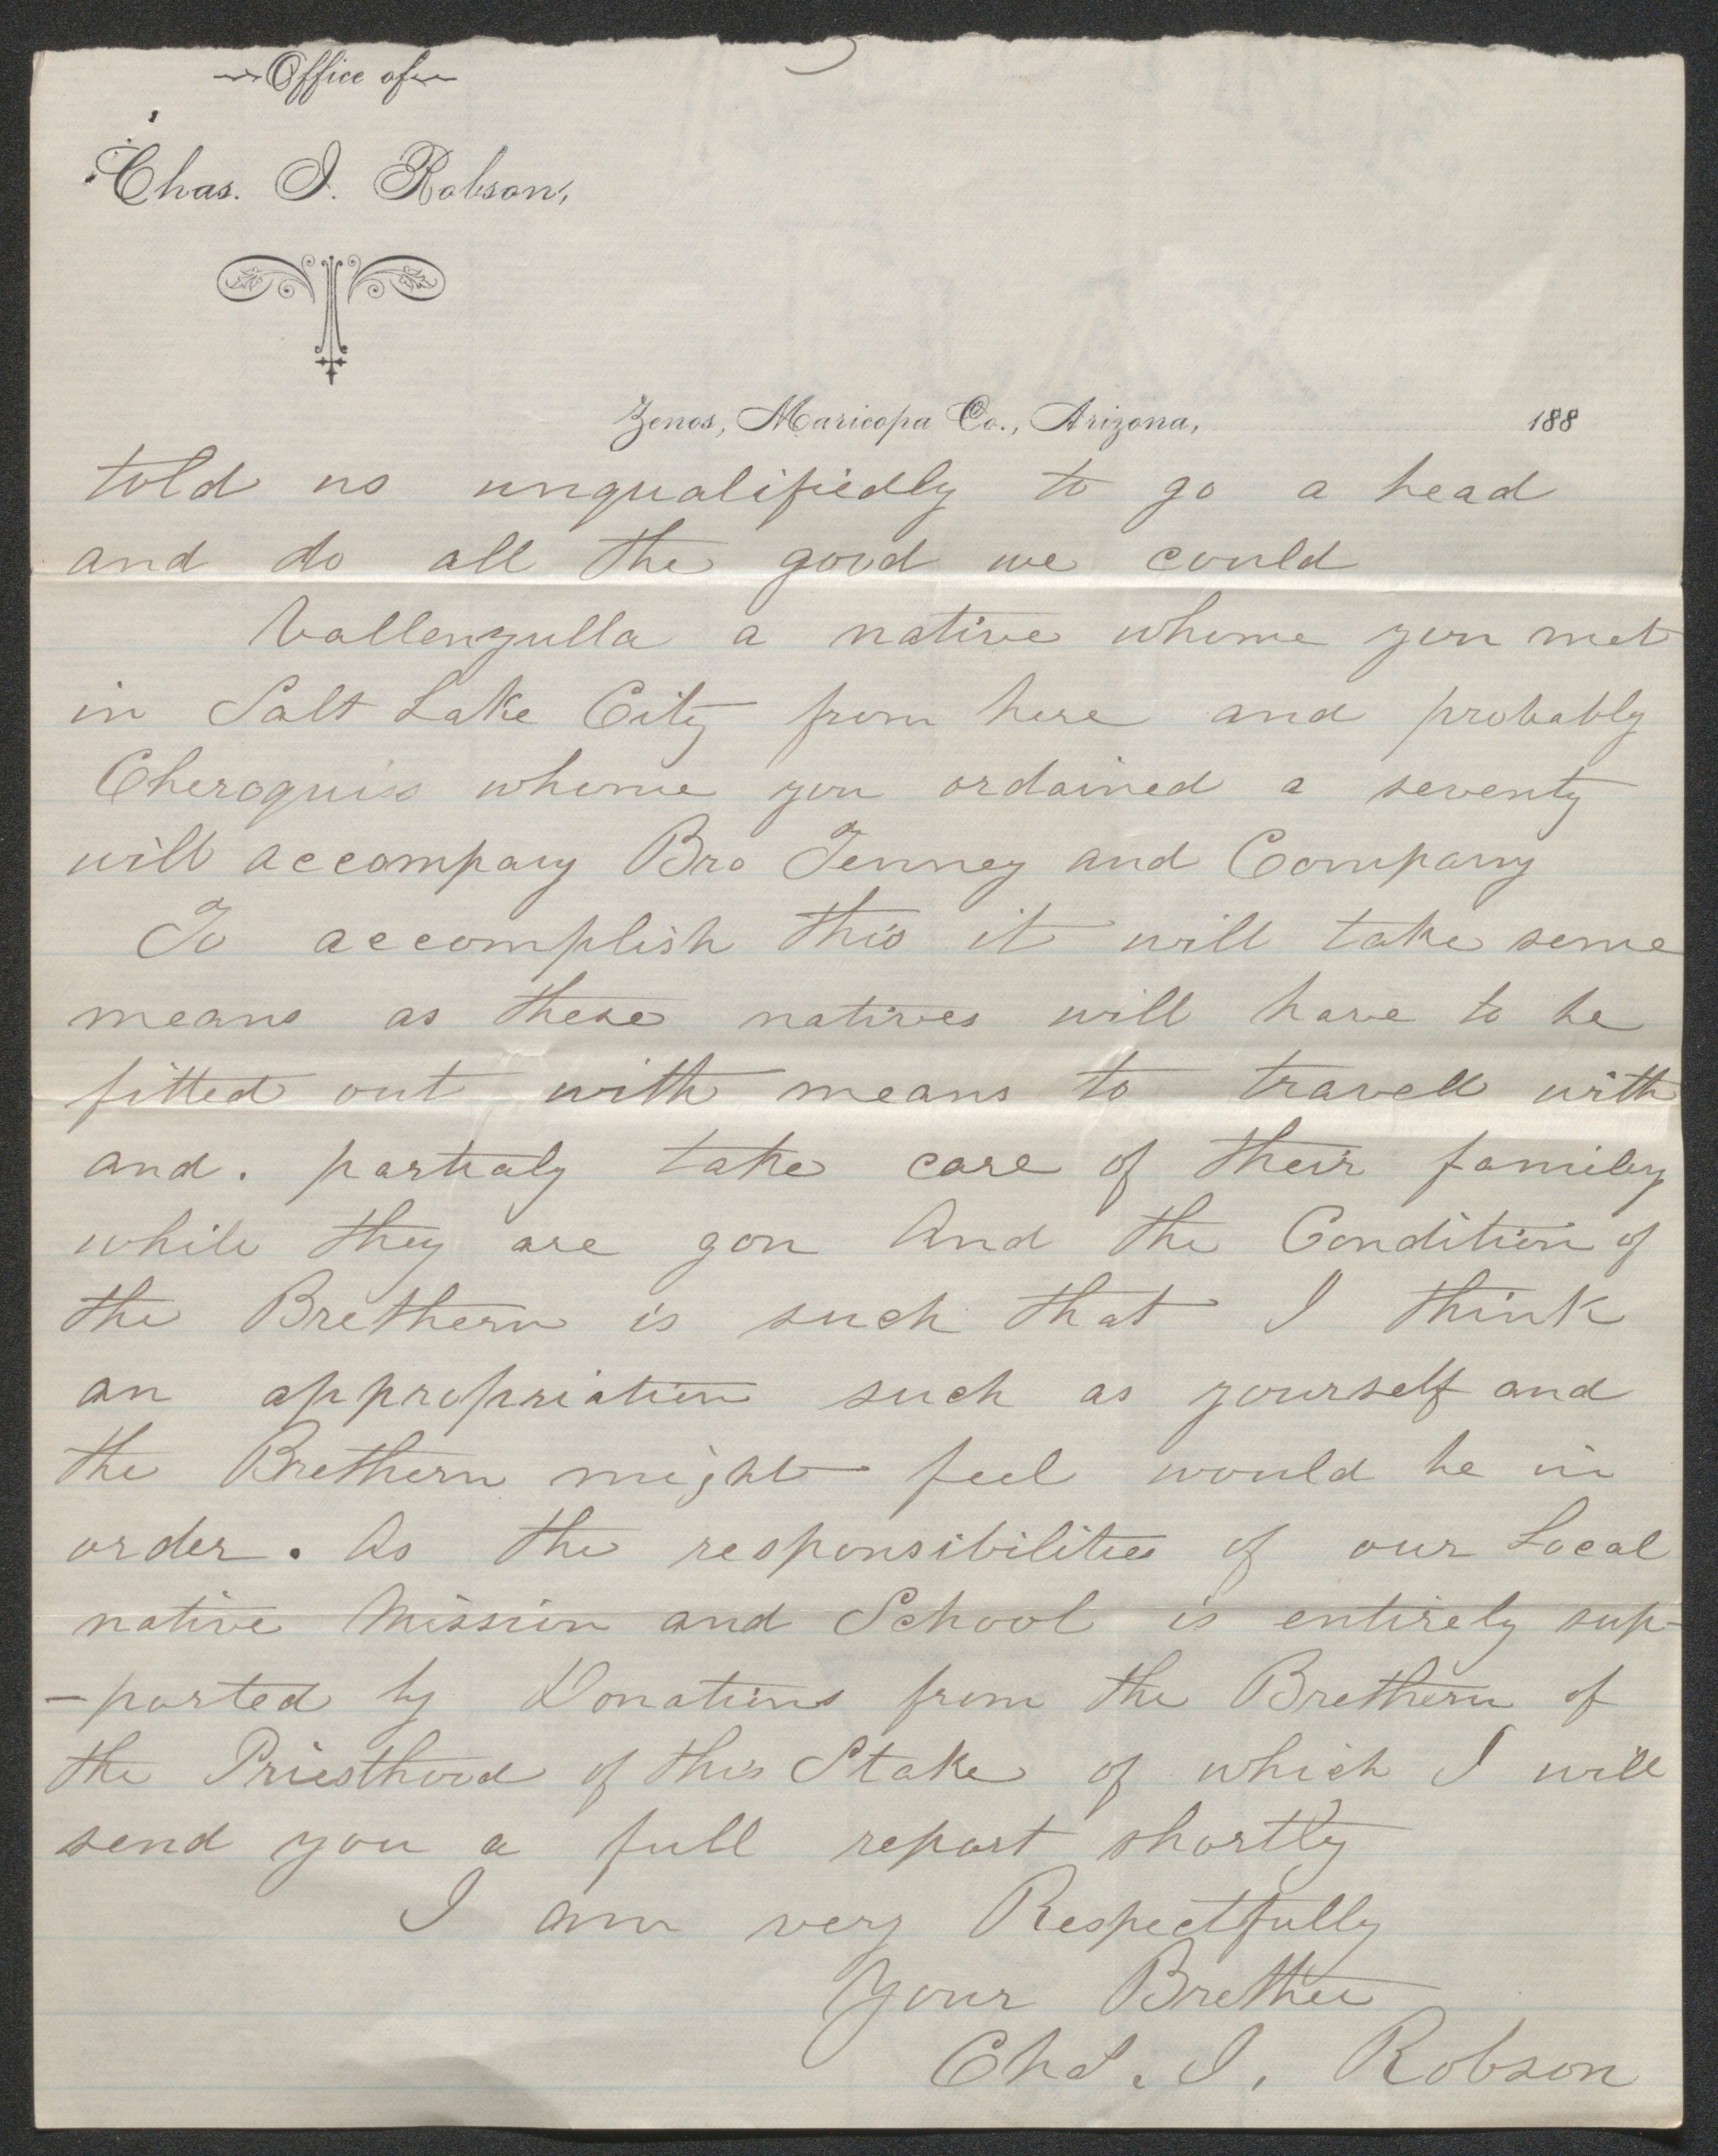 Office of
Chas. I. Robson,
Zenos, Maricopa Co., Arizona, 188
told us unqualifiedly to go a head
and do all the good we could
Vallenzulla a native whome you met
in Salt Lake City from here and probably
Cheroquis whome you ordained a seventy
will accompany Bro Tenney and Company
To accomplish this it will take some
means as these natives will have to be
fitted out with means to travell with
and. partialy take care of their family
while they are gon And the Condition of
the Brethern is such that I think
an appropriation such as yourself and
the Brethern might feel would be in
order. As the responsibilities of our Local
native Mission and School is entirely sup-
-ported by Donations from the Brethern of
the Priesthood of this Stake of which I will
send you a full report shortly
I am very Respectfully
Your Brother
Chas. I. Robson